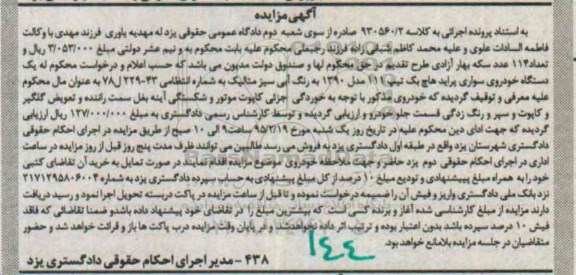 آگهی مزایده
به استناد پرونده اجرائی به کلاسه ۹۳۰۵۶۰/۲ صادره از سوی شعبه دوم دادگاه عمومی حقوقی یزد له مهدیه یاوری فرزند مهدی با وکالت
فاطمه السادات علوی و علیه محمد کاظم شبانی زاده فرزند رجبعلی محکوم علیه بابت محکوم به و نیم عشر دولتی مبلغ ۳/۰۵۳/۰۰۰ ریال و
تعداد ۱۱۴ عدد سکه بهار آزادی طرح تقدیم در حق محکوم لها و صندوق دولت مدیون می باشد که حسب اعلام و درخواست محکوم له یک
دستگاه خودروی سواری پراید هاچ بک تیپ ۱۱۱ مدل ۱۳۹۰ به رنگ آبی سبز متالیک به شماره انتظامی ۴۳-۲۲۹ل۷۸ به عنوان مال محکوم
علیه معرفی و توقیف گردیده که خودروی مذکور با توجه به خوردگی جزئی کاپوت موتور و شکستگی آینه بغل سمت راننده و تعویض گلگیر
و کاپوت و سپر و رنگ زدگی قسمت جلو خودرو و ارزیابی گردیده و توسط کارشناس رسمی دادگستری به مبلغ ۱۲۷/۰۰۰/۰۰۰ ریال ارزیابی
گردیده که جهت ادای دین محکوم علیه در تاریخ روز یک شنبه مورخ ۹۵/۲/۱۹ ساعت ۹ الی ۱۰ صبح از طریق مزایده در اجرای احکام حقوقی
دادگستری شهرستان یزد واقع در طبقه اول دادگستری یزد به فروش می رسد طالبین می توانند ظرف مدت پنج روز قبل از روز مزایده در ساعت
اداری در اجرای احکام حقوقی دوم یزد حاضر و به ملاحظه خودروی موضوع مزایده اقدام نمایند در صورت تمایل به خرید آن تقاضای کتبی
خود را به همراه مبلغ پیشنهادی و تودیع مبلغ ۱۰ درصد از کل مبلغ پیشنهادی به حساب سپرده دادگستری یزد به شماره ۲۱۷۱۲۹۵۸۰۶۰۰۴
نزد بانک ملی دادگستری واریز و فیش آن را ضمیمه درخواست نموده و تا قبل از ساعت مزایده در پاکت دربسته تحویل اجرا نمود و رسید دریافت
دارند مزایده از مبلغ کارشناسی شده آغاز و برنده کسی است که بیشترین مبلغ را در تقاضای خود پیشنهاد داده باشد و ضمنا تقاضائی که فاقد
فیش ۱۰ درصد سپرده باشد بدون اعتبار بوده و ترتیب اثر داده نخواهد شد و در پایان وقت مزایده درب پاکت ها باز و قرائت خواهد شد و حضور
متقاضیان در جلسه مزایده بلامانع خواهد بود.
۱۴۴
۴۳۸ - مدیر اجرای احکام حقوقی دادگستری یزد